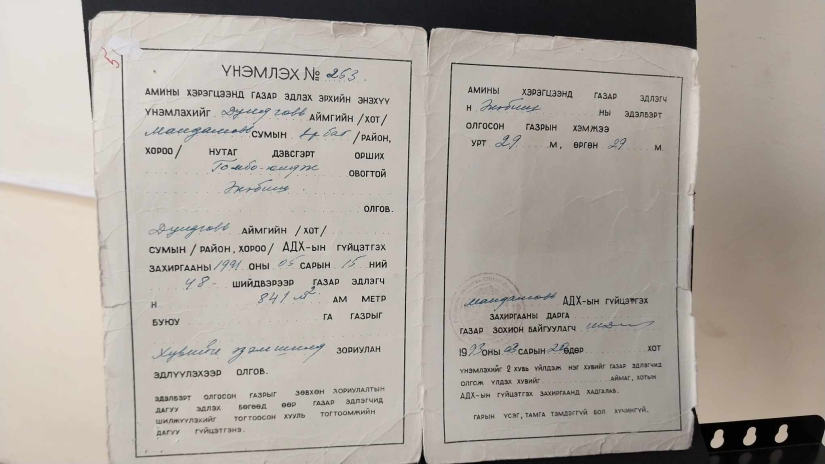 ҮНЭМЛЭХ № 253.
АМИНЫ ХЭРЭГЦЭЭНД ГАЗАР ЭДЛЭХ ЭРХИЙН ЭНЭХҮҮ
ҮНЭМЛЭХИЙГ Дундговь АЙМГИЙН /ХОТ/
Мандалговь СУМЫН /РАЙОН,
ХОРОО/ НУТАГ ДЭВСГЭРТ ОРШИХ
ОВОГТОЙ
ОЛГОВ.
Дундговь АЙМГИЙН /ХОТ/
СУМЫН /РАЙОН, ХОРОО/ АДХ-ЫН ГҮЙЦЭТГЭХ
ЗАХИРГААНЫ 1991 ОНЫ 05 САРЫН 15 НИЙ
48- ШИЙДВЭРЭЭР ГАЗАР ЭДЛЭГЧ
Н 841 м² АМ МЕТР
БУЮУ ГА ГАЗРЫГ
Хувийн ЗОРИУЛАН
ЭДЛҮҮЛЭХЭЭР ОЛГОВ.
ЭДЭЛБЭРТ ОЛГОСОН ГАЗРЫГ ЗӨВХӨН ЗОРИУЛАЛТЫН
ДАГУУ ЭДЛЭХ БӨГӨӨД ӨӨР ГАЗАР ЭДЛЭГЧИД
ШИЛЖҮҮЛЭХИЙГ ТОГТООСОН ХУУЛЬ ТОГТООМЖИЙН
ДАГУУ ГҮЙЦЭТГЭНЭ.
АМИНЫ ХЭРЭГЦЭЭНД ГАЗАР ЭДЛЭГЧ
Н НЫ ЭДЭЛБЭРТ
ОЛГОСОН ГАЗРЫН ХЭМЖЭЭ
УРТ 29 М, ӨРГӨН 29 М
Мандалговь АДХ-ЫН ГҮЙЦЭТГЭХ
ЗАХИРГААНЫ ДАРГА
ГАЗАР ЗОХИОН БАЙГУУЛАГЧ
1993 ОНЫ 03 САРЫН ӨДӨР ХОТ
ҮНЭМЛЭХИЙГ 2 ХУВЬ ҮЙЛДЭЖ НЭГ ХУВИЙГ ГАЗАР ЭДЛЭГЧИД
ОЛГОЖ ҮЛДЭХ ХУВИЙГ АЙМАГ, ХОТЫН
АДХ-ЫН ГҮЙЦЭТГЭХ ЗАХИРГААНД ХАДГАЛАВ.
ГАРЫН ҮСЭГ, ТАМГА ТЭМДЭГГҮЙ БОЛ ХҮЧИНГҮЙ.